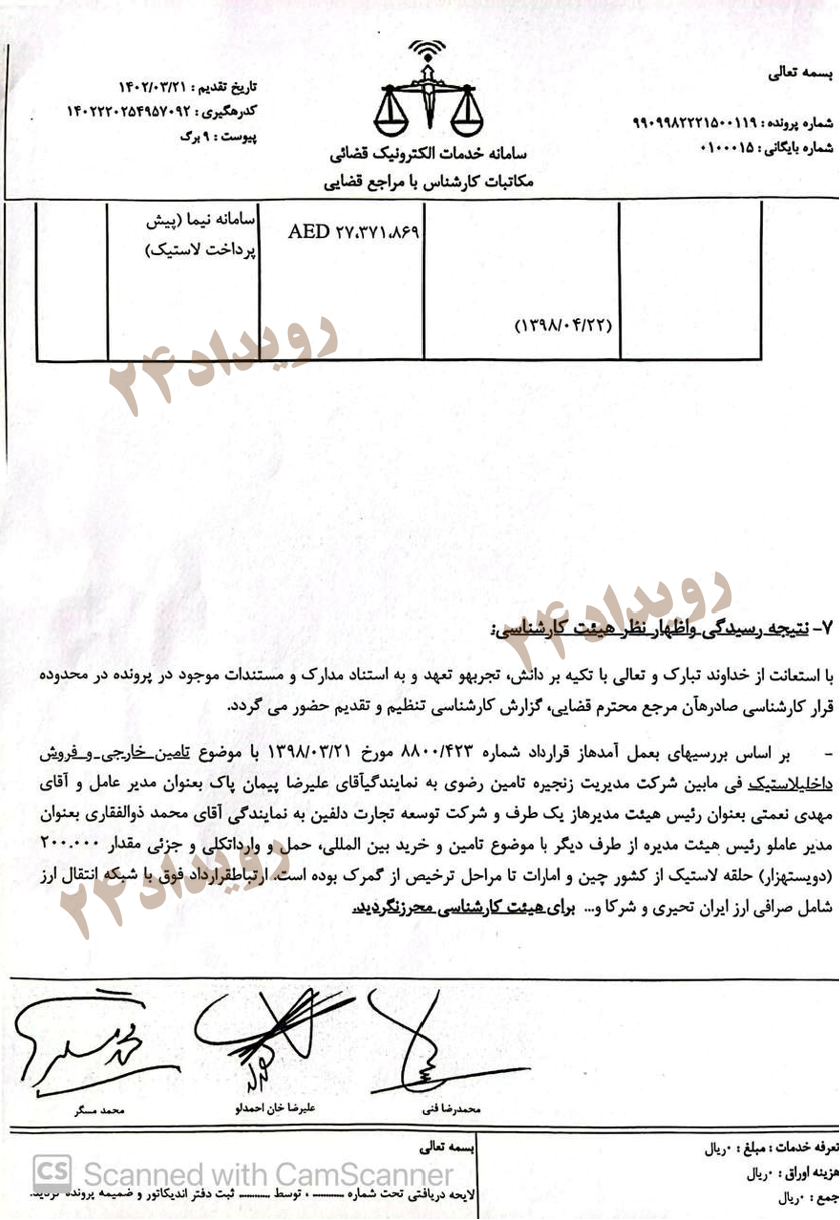 بسمه تعالی
شماره پرونده : ۹۹۰۹۹۸۲۲۲۱۵۰۰۱۱۹
شماره بایگانی : ۰۱۰۰۰۱۵
سامانه خدمات الکترونیک قضائی
مکاتبات کارشناس با مراجع قضایی
تاریخ تقدیم : ۱۴۰۲/۰۳/۲۱
کدرهگیری : ۱۴۰۲۲۲۰۲۵۴۹۵۷۰۹۲
پیوست : ۹ برگ
(۱۳۹۸/۰۴/۲۲)
AED ۲۷،۳۷۱،۸۶۹
سامانه نیما (پیش
پرداخت لاستیک)
رویداد۲۴
رویداد۲۴
۷- نتیجه رسیدگی واظهار نظر هیئت کارشناسی:
با استعانت از خداوند تبارک و تعالی با تکیه بر دانش، تجربهو تعهد و به استناد مدارک و مستندات موجود در پرونده در محدوده
قرار کارشناسی صادرهآن مرجع محترم قضایی، گزارش کارشناسی تنظیم و تقدیم حضور می گردد.
- بر اساس بررسیهای بعمل آمدهاز قرارداد شماره ۸۸۰۰/۴۲۳ مورخ ۱۳۹۸/۰۳/۲۱ با موضوع تامین خارجی و فروش
داخلیلاستیک فی مابین شرکت مدیریت زنجیره تامین رضوی به نمایندگیآقای علیرضا پیمان پاک بعنوان مدیر عامل و آقای
مهدی نعمتی بعنوان رئیس هیئت مدیرهاز یک طرف و شرکت توسعه تجارت دلفین به نمایندگی آقای محمد ذوالفقاری بعنوان
مدیر عاملو رئیس هیئت مدیره از طرف دیگر با موضوع تامین و خرید بین المللی، حمل و وارداتکلی و جزئی مقدار ۲۰۰.۰۰۰
(دویستهزار) حلقه لاستیک از کشور چین و امارات تا مراحل ترخیص از گمرک بوده است. ارتباطقرارداد فوق با شبکه انتقال ارز
شامل صرافی ارز ایران تحیری و شرکا و... برای هیئت کارشناسی محرزنگردید.
رویداد۲۴
محمدرضا فنی
علیرضا خان احمدلو
محمد مسگر
تعرفه خدمات : مبلغ : ۰ریال
هزینه اوراق : ۰ریال
جمع : ۰ریال
بسمه تعالی
لایحه دریافتی تحت شماره ............ ، توسط ............ ثبت دفتر اندیکاتور و ضمیمه پرونده گردید.
CS Scanned with CamScanner